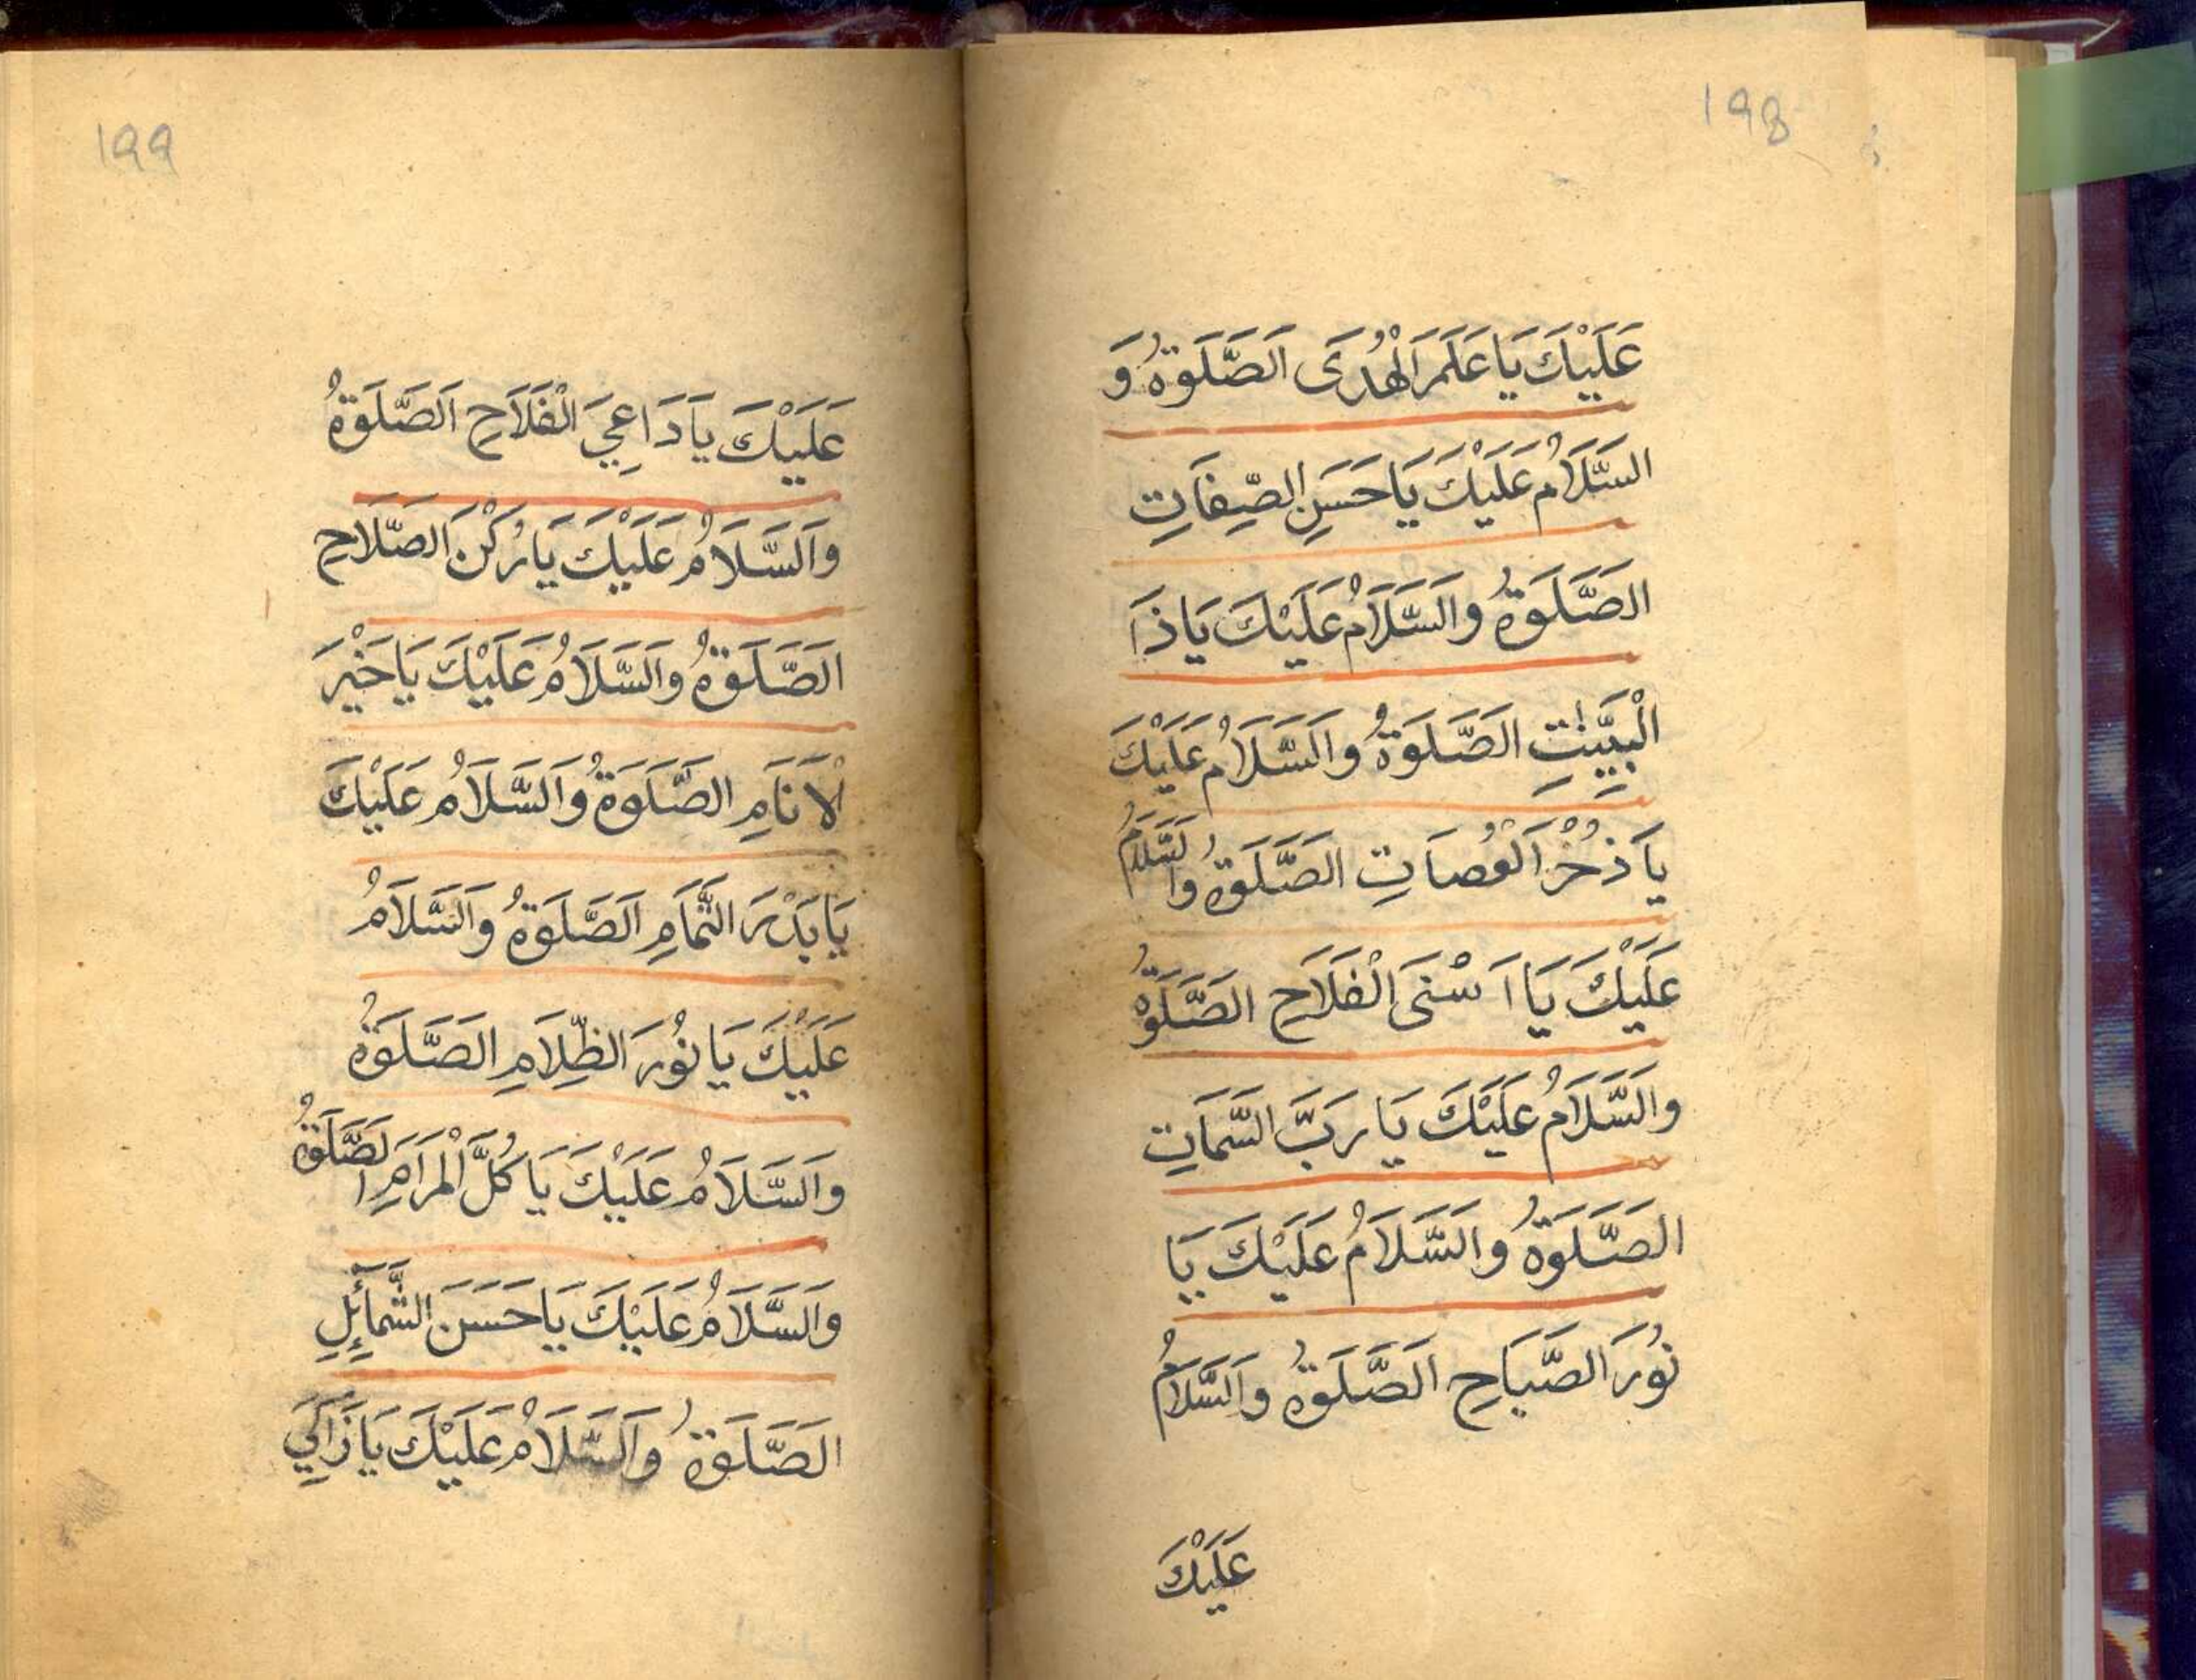 198
عَلَيْكَ يَا عَلَمَ الْهُدَى اَلصَّلَوةُ وَ
السَّلَامُ عَلَيْكَ يَا حَسَنِ الصِّفَاتِ
الصَّلَوةُ وَالسَّلَامُ عَلَيْكَ يَا ذَا
الْبَيِّنٰتِ الصَّلَوةُ وَالسَّلَامُ عَلَيْكَ
يَا ذُخْرَ الْعُصَاتِ الصَّلَوةُ وَالسَّلَامُ
عَلَيْكَ يَا اَسْنَى الْفَلَاحِ الصَّلَوةُ
وَالسَّلَامُ عَلَيْكَ يَا رَبَّ السَّمَاتِ
الصَّلَوةُ وَالسَّلَامُ عَلَيْكَ يَا
نُورَ الصَّبَاحِ اَلصَّلَوةُ وَالسَّلَامُ
عَلَيْكَ
199
عَلَيْكَ يَا دَاعِيَ الْفَلَاحِ اَلصَّلَوةُ
وَالسَّلَامُ عَلَيْكَ يَا رُكْنَ الصَّلَاحِ
الصَّلَوةُ وَالسَّلَامُ عَلَيْكَ يَا خَيْرَ
الْاَنَامِ الصَّلَوةُ وَالسَّلَامُ عَلَيْكَ
يَا بَدْرَ التَّمَامِ اَلصَّلَوةُ وَالسَّلَامُ
عَلَيْكَ يَا نُورَ الظِّلَامِ الصَّلَوةُ
وَالسَّلَامُ عَلَيْكَ يَا كُلَّ الْمَرَامِ الصَّلَوةُ
وَالسَّلَامُ عَلَيْكَ يَا حَسَنَ الشَّمَآئِلِ
الصَّلَوةُ وَالسَّلَامُ عَلَيْكَ يَا زَاكِيَ